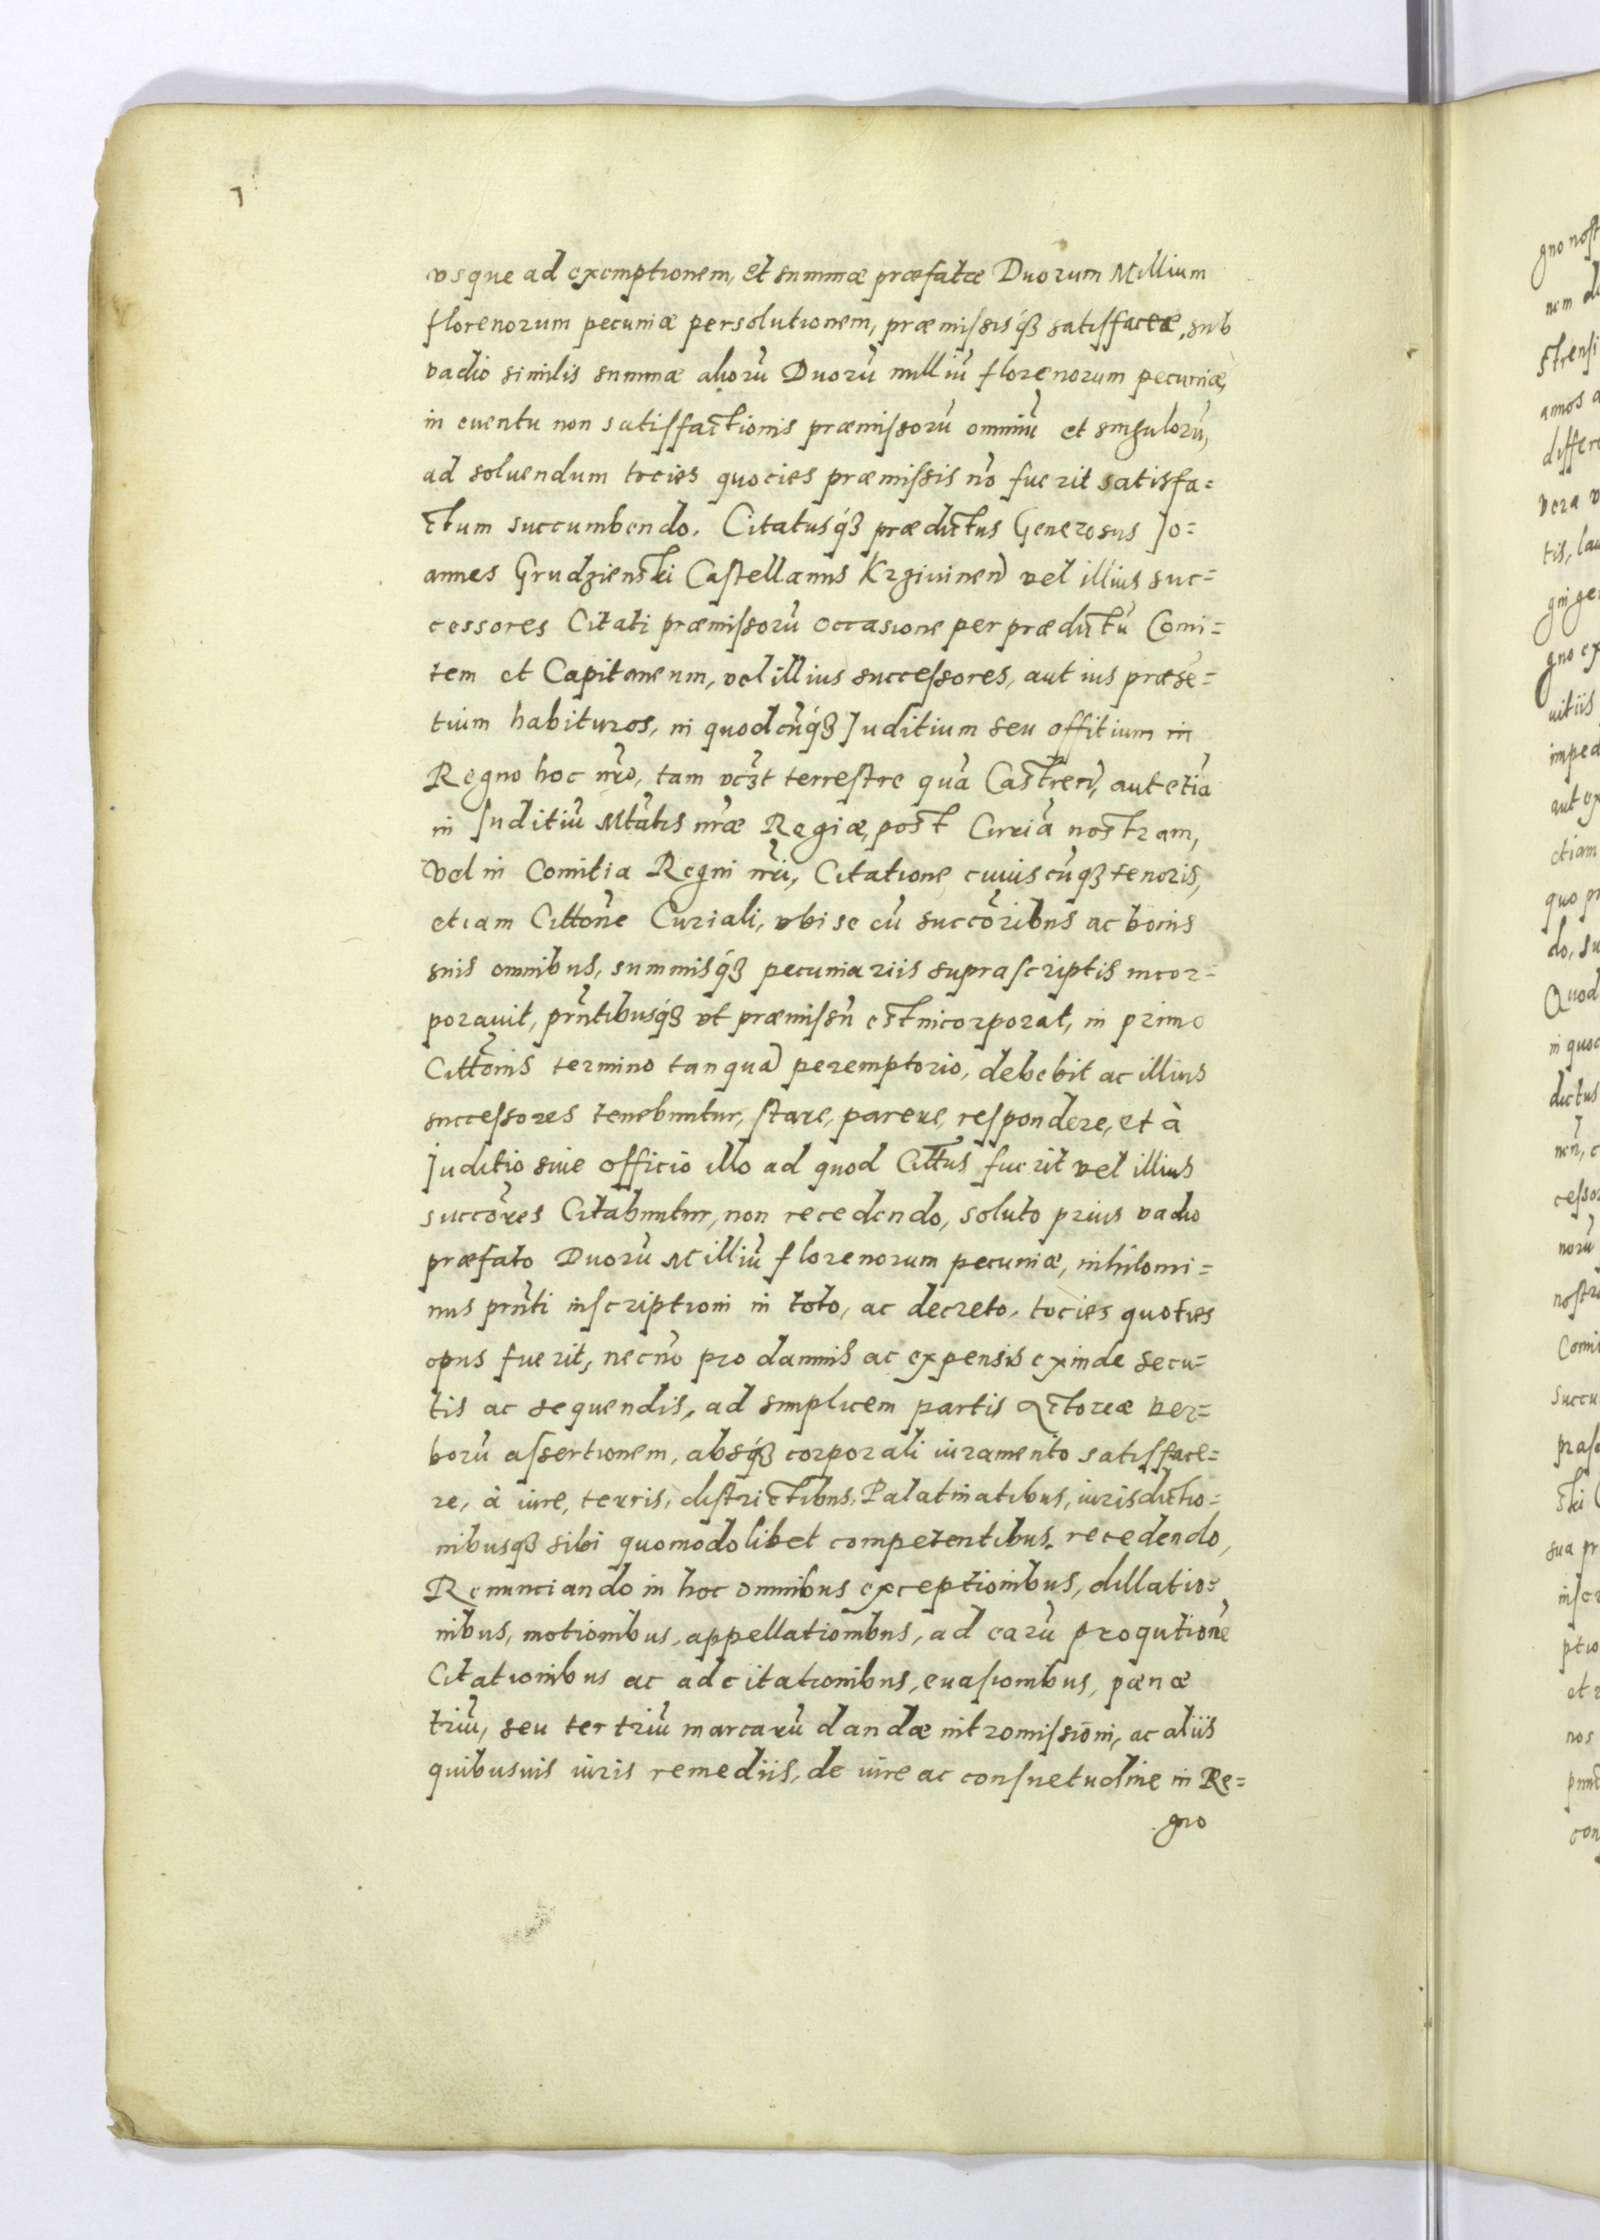 vsque ad exemptionem, et summæ præfatæ Duorum Millium
florenorum pecuniæ persolutionem, præmissisq́ꝫ satisfacẽ, sub
vadio similis summæ aliorũ Duorũ milliũ florenorum pecuniæ,
in euentu non satisfactionis præmissorũ omniũ et singulorũ,
ad soluendum tocies quocies præmissis nõ fuerit satisfa=
ctum succumbendo. Citatusq́ꝫ prædictus Generosus Jo=
annes Grudzienski Castellanus Krziuinen̄ vel illius suc=
cessores Citati præmissorũ occasione per prædictũ Comi=
tem et Capitaneum, vel illius successores, aut ius præsẽ=
tium habituros, in quodcũq́ꝫ Juditium seu offitium in
Regno hoc nr̃o, tam vcꝫt terrestre quã Castren̄, aut etiã
in Juditiũ Mtãtis nr̃æ Regiæ, post Curiã nostram,
Vel in Comitia Regni nr̃i, Citatione cuiuscũqꝫ tenoris,
etiam Cittõne Curiali, vbi se cũ succõribus ac bonis
suis omnibus, summisq́ꝫ pecuniariis suprascriptis incor=
porauit, prñtibusq́ꝫ vt præmissũ est incorporat, in primo
Cittõnis termino tanquã peremptorio, debebit ac illius
successores tenebuntur, stare, parere, respondere, et à
Juditio siue officio illo ad quod Cittus fuerit vel illius
succõres Citabuntur, non recedendo, soluto prius vadio
præfato Duorũ Milliũ florenorum pecuniæ, nihilomi=
nus prñti inscriptioni in toto, ac decreto, tocies quoties
opus fuerit, necnõ pro damnis ac expensis exinde secu=
tis ac sequendis, ad simplicem partis Actoreæ ver=
borũ assertionem, absq́ꝫ corporali iuramento satisface=
re, à iure, terris, districtibus, Palatinatibus, iurisdictio=
nibusqꝫ sibi quomodolibet competentibus recedendo,
Renunciando in hoc omnibus exceptionibus, dillatio=
nibus, motionibus, appellationibus, ad earũ proqutionẽ
Citationibus ac adcitationibus, euasionibus, pænæ
triũ, seu ter triũ marcarũ dandæ intromissioni, ac aliis
quibusuis iuris remediis, de iure ac consuetudine in Re=
gno